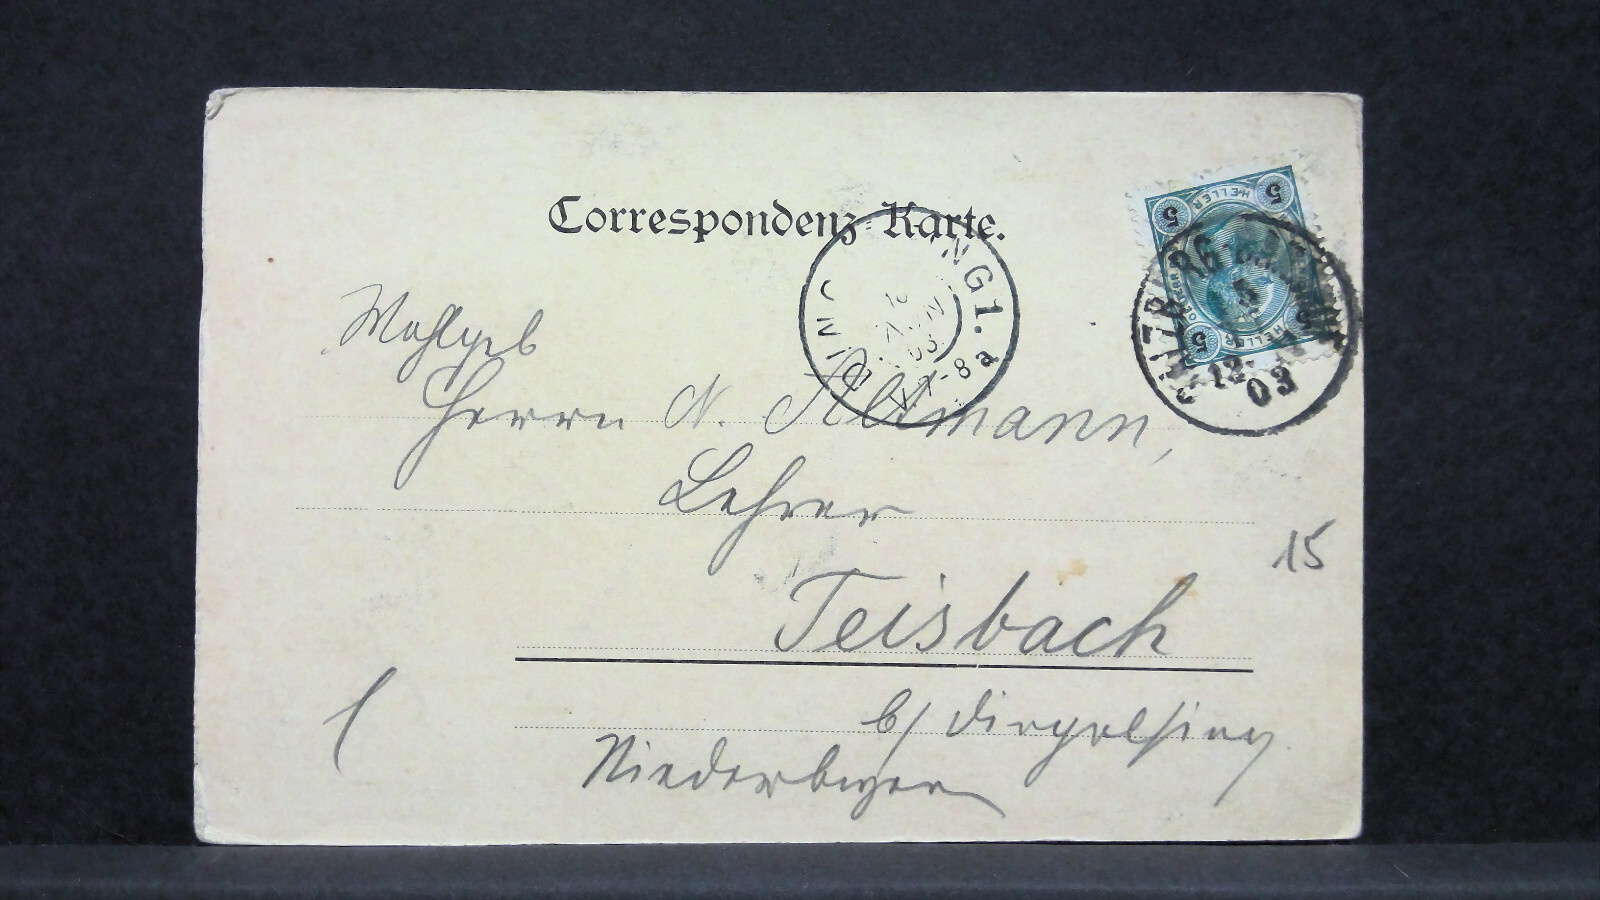 Correspondenz-Karte.
5 HELLER 5
5 HELLER
SALZBURG
5
12
03
NG 1.
7-8 a
Wohlgeb
Herrn N. Altmann,
Lehrer
15
Teisbach
b/ Dingolfing
Niederbayern